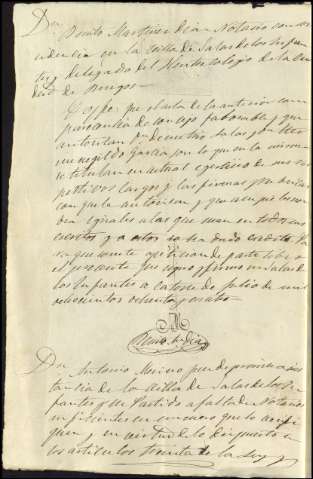 Don Benito Martinez Diaz Notario con re
sidencia en la villa de Salas de los Infan
tes, delegado del Ilustre Colegio de la Ciu
dad de Burgos
Doy fe: que el acta de la anterior com
que
autorizan Dn Demetrio Salas y Dn Her
menegildo Garcia por lo que en la misma
se titulan en actual egercicio de sus res
pectivos cargos y las firmas y rubricas
con que la autorizan, y que aunque
iguales a las que usan en todos sus
escritos y a estos se ha dado credito. Pa
ra que conste a peticion de parte libro
el presente que signo y firmo en Salas de
los Infantes a catorce de Julio de mil
ochocientos ochenta y cuatro
Benito M. Diaz
Don Antonio Merino Juez de primera ins
tancia de la villa de Salas de los In
fantes y su Partido a falta de Notarios
suficientes en numero que lo
quen, y en virtud de lo dispuesto en
los articulos treinta de la Ley